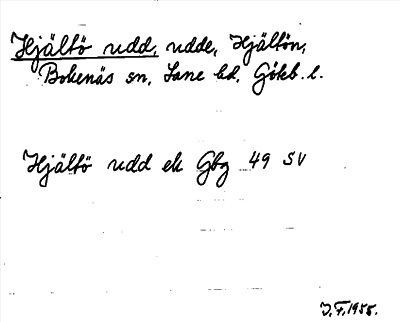 Hjältö udd, udde, Hjältön,
Bokenäs sn, Lane hd, Göteb. l.
Hjältö udd ek Gbg 49 SV
J.F. 1955.